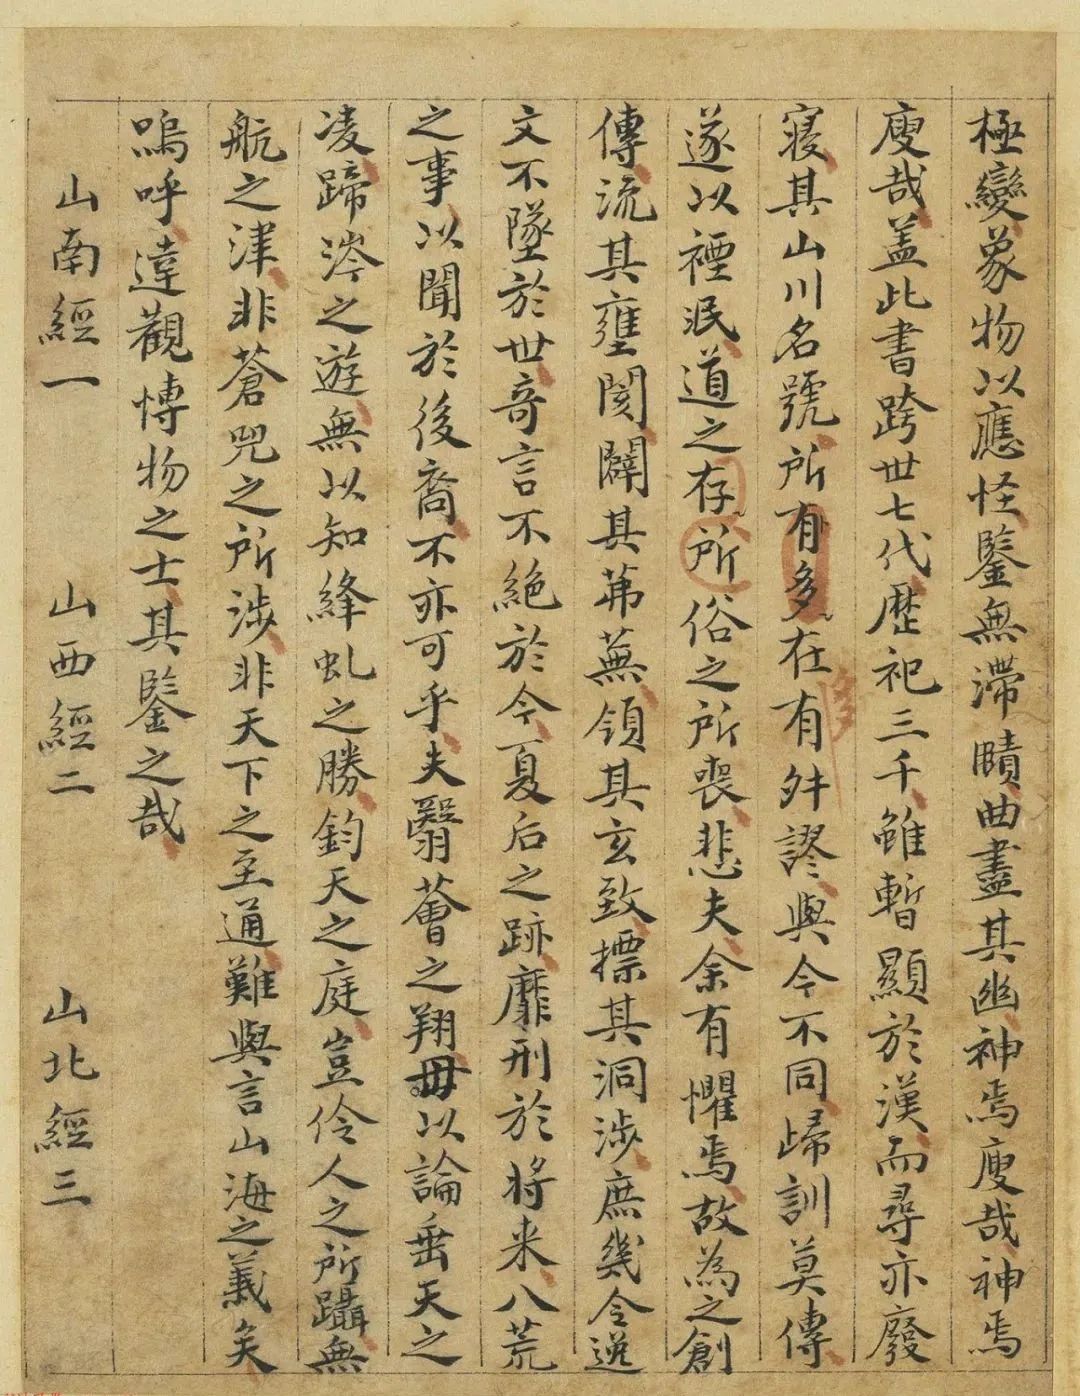 極變象物以應怪鑒無滯賾曲盡其幽神焉廋哉神焉
廋哉盖此書跨世七代歷祀三千雖暫顯於漢而尋亦廢
寢其山川名號所有多在有舛謬與今不同師訓莫傳
遂以禋泯道之存所俗之所喪悲夫余有懼焉故為之創
傳流其壅閡闢其茀蕪領其玄致摽其洞涉庶幾令逸
文不墜於世竒言不絕於今夏后之跡靡刑於將来八荒
之事以聞於後裔不亦可乎夫翳薈之翔毋以論垂天之
凌蹄涔之遊無以知絳虬之勝鈞天之庭豈伶人之所躡無
航之津非蒼兕之所涉非天下之至通難與言山海之義矣
嗚呼達觀博物之士其鑒之哉
山南經一 山西經二 山北經三